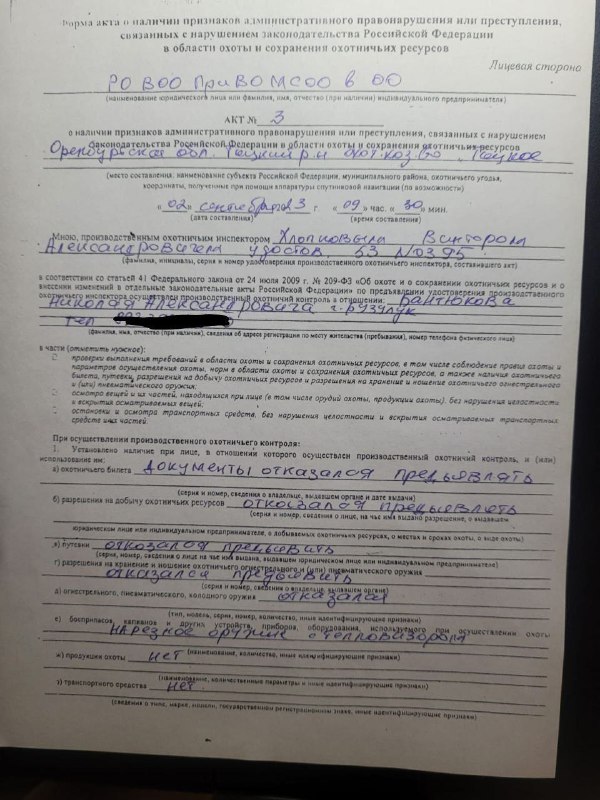 Форма акта о наличии признаков административного правонарушения или преступления,
связанных с нарушением законодательства Российской Федерации
в области охоты и сохранения охотничьих ресурсов
Лицевая сторона
РО ВОО ПриВО МСОО в ОО
(наименование юридического лица или фамилия, имя, отчество (при наличии) индивидуального предпринимателя)
АКТ № 3
о наличии признаков административного правонарушения или преступления, связанных с нарушением
законодательства Российской Федерации в области охоты и сохранения охотничьих ресурсов
Оренбурьская обл. Тоцкий р.н охот.хоз-во Тоцкое
(место составления: наименование субъекта Российской Федерации, муниципального района, охотничьего угодья,
координаты, полученные при помощи аппаратуры спутниковой навигации (по возможности)
« 02 » сентября 23 г. « 09 » час. « 30 » мин.
(дата составления) (время составления)
Мною, производственным охотничьим инспектором Хлопковым Виктором
Александровичем удостов 53 N0395
(фамилия, инициалы, серия и номер удостоверения производственного охотничьего инспектора, составившего акт)
в соответствии со статьей 41 Федерального закона от 24 июля 2009 г. № 209-ФЗ «Об охоте и о сохранении охотничьих ресурсов и о
внесении изменений в отдельные законодательные акты Российской Федерации» по предъявлении удостоверения производственного
охотничьего инспектора осуществлен производственный охотничий контроль в отношении: Вантюкова
Николая Александровича г. Бузулук
тел
(фамилия, имя, отчество (при наличии), сведения об адресе регистрации по месту жительства (пребывания), номер телефона физического лица)
в части (отметить нужное):
проверки выполнения требований в области охоты и сохранения охотничьих ресурсов, в том числе соблюдения правил охоты и
параметров осуществления охоты, норм в области охоты и сохранения охотничьих ресурсов, а также наличия охотничьего
билета, путевки, разрешения на добычу охотничьих ресурсов и разрешения на хранение и ношение охотничьего огнестрельного
и (или) пневматического оружия;
осмотра вещей и их частей, находящихся при лице (в том числе орудий охоты, продукции охоты), без нарушения целостности
и вскрытия осматриваемых вещей;
остановки и осмотра транспортных средств, без нарушения целостности и вскрытия осматриваемых транспортных
средств и их частей.
При осуществлении производственного охотничьего контроля:
1. Установлено наличие при лице, в отношении которого осуществлен производственный охотничий контроль, и (или)
использование им:
а) охотничьего билета документы отказался предъевлять
(серия и номер, сведения о владельце, выдавшем органе и дате выдачи)
б) разрешения на добычу охотничьих ресурсов отказался предъевлеть
(серия и номер, сведения о лице, на чье имя выдано разрешение, о выдавшем
юридическом лице или индивидуальном предпринимателе, о добываемых охотничьих ресурсах, о местах и сроках охоты, о виде охоты)
в) путевки отказался предъевить
(серия, номер, сведения о лице на чье имя выдана, выдавшем юридическом лице или индивидуальном предпринимателе)
г) разрешения на хранение и ношение охотничьего огнестрельного и (или) пневматического оружия
отказался предъевить
(серия и номер, сведения о владельце, выдавшем органе)
д) огнестрельного, пневматического, холодного оружия отказался
(тип, модель, серия, номер, количество, иные идентифицирующие признаки)
е) боеприпасов, капканов и других устройств, приборов, оборудования, используемых при осуществлении охоты
нарезное оружие с тепловизором
(наименование, количество, иные идентифицирующие признаки)
ж) продукции охоты нет
(наименование, количественные параметры и иные идентифицирующие признаки)
з) транспортного средства нет.
(сведения о типе, марке, модели, государственном регистрационном знаке, иные идентифицирующие признаки)